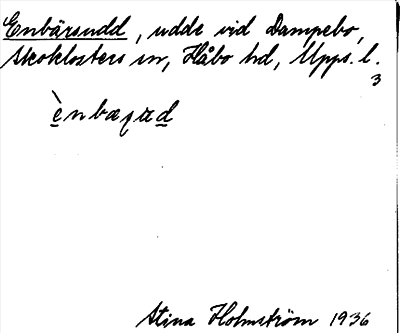 Enbärsudd, udde vid Dampebo,
Skoklosters sn, Håbo hd, Upps. l.
3
Stina Holmström 1936